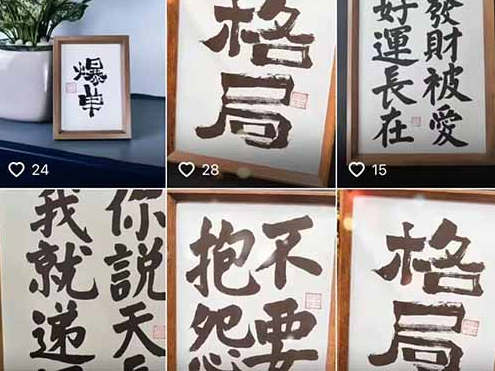 爆申
24
格局
28
發財被愛
好運長在
15
你說天
我就递
不要
抱怨
格局